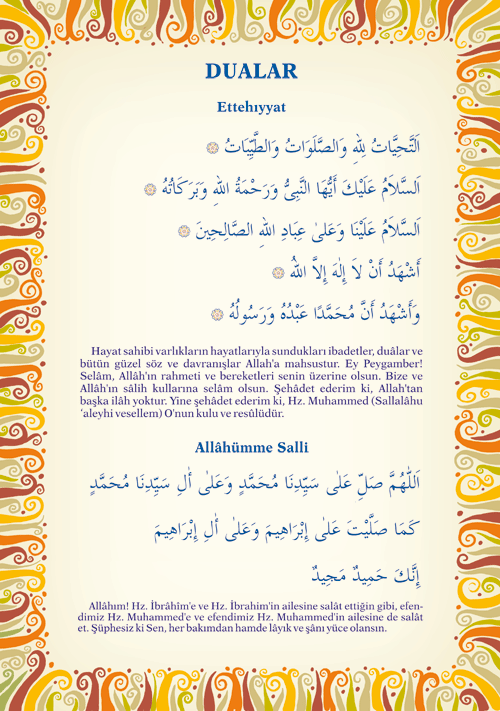 DUALAR
Ettehıyyat
اَلتَّحِيَّاتُ لِلّٰهِ وَالصَّلَوَاتُ وَالطَّيِّبَاتُ
اَلسَّلاَمُ عَلَيْكَ أَيُّهَا النَّبِيُّ وَرَحْمَةُ اللّٰهِ وَبَرَكَاتُهُ
اَلسَّلاَمُ عَلَيْنَا وَعَلىٰ عِبَادِ اللّٰهِ الصَّالِحِينَ
أَشْهَدُ أَنْ لاَ إِلٰهَ إِلاَّ اللّٰهُ
وَأَشْهَدُ أَنَّ مُحَمَّدًا عَبْدُهُ وَرَسُولُهُ
Hayat sahibi varlıkların hayatlarıyla sundukları ibadetler, duâlar ve
bütün güzel söz ve davranışlar Allah'a mahsustur. Ey Peygamber!
Selâm, Allâh'ın rahmeti ve bereketleri senin üzerine olsun. Bize ve
Allâh'ın sâlih kullarına selâm olsun. Şehâdet ederim ki, Allah'tan
başka ilâh yoktur. Yine şehâdet ederim ki, Hz. Muhammed (Sallalâhu
'aleyhi vesellem) O'nun kulu ve resûlüdür.
Allâhümme Salli
اَللّٰهُمَّ صَلِّ عَلىٰ سَيِّدِنَا مُحَمَّدٍ وَعَلىٰ أٰلِ سَيِّدِنَا مُحَمَّدٍ
كَمَا صَلَّيْتَ عَلىٰ إِبْرَاهِيمَ وَعَلىٰ أٰلِ إِبْرَاهِيمَ
إِنَّكَ حَمِيدٌ مَجِيدٌ
Allâhım! Hz. İbrâhîm'e ve Hz. İbrahim'in ailesine salât ettiğin gibi, efen-
dimiz Hz. Muhammed'e ve efendimiz Hz. Muhammed'in ailesine de salât
et. Şüphesiz ki Sen, her bakımdan hamde lâyık ve şânı yüce olansın.